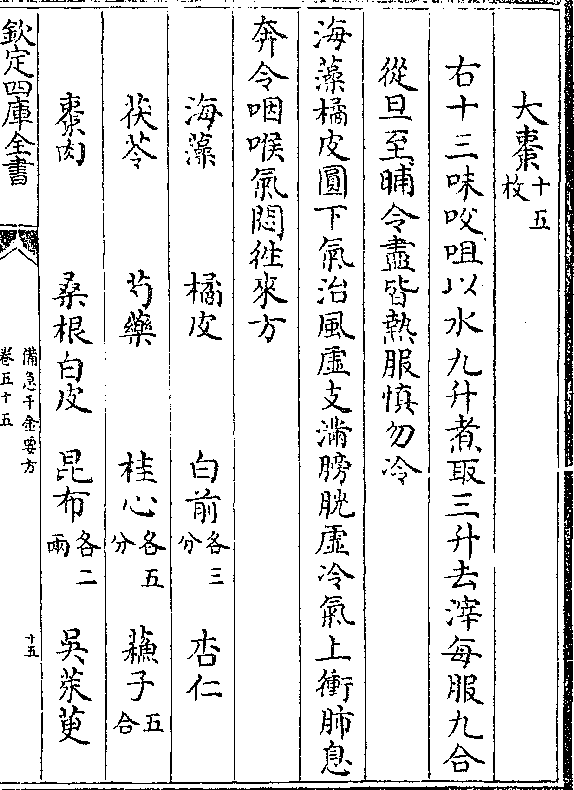 大棗十五枚
右十三味㕮咀以水九升煮取三升去滓每服九合
從旦至晡令盡皆熱服慎勿冷
海藻橘皮圓下氣治風虛支滿膀胱虛冷氣上衝肺息
奔令咽喉氣悶徃來方
海藻 橘皮 白前各三分 杏仁
茯苓 芍藥 桂心各五分 蘓子五合
棗肉 桑根白皮 昆布各二兩 吳茱萸
欽定四庫全書
備急千金要方
卷五十五
十五